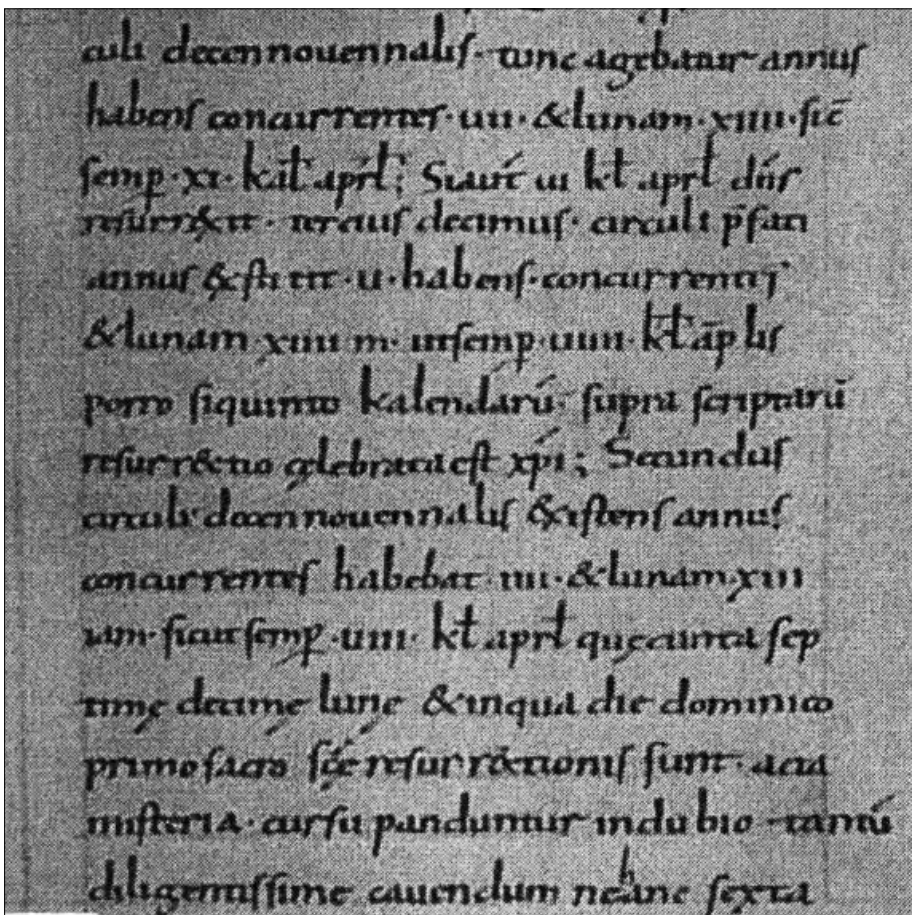 culi decennouennalis · tunc agebatur annus
habens concurrentes · uii · &lunam · xiiii · sic̄
semp̱ · xi · kal̄ apr̄l ; Siaut̄ iii kł aprł dn̄s
resurr&it · tercius decimus · circuli p̄fati
annus &stitit · u · habens · concurrentis
&lunam xiiii m · utsemp̱ · uiiii · kł ap̄lis
porro siquinto kalendarū · supra scriptarū
resurr&tio cęlebrata est xp̄i ; Secundus
circuli decennouennalis &istens annus
concurrentes habebat · iiii · &lunam · xiiii
iam · sicut semp̱ · uiii · kł aprł quę cuncta sep
timę decimę lunę &inqua die dominico
primo sacro sc̄ę resurr&tionis sunt · acta
misteria · cursu panduntur indubio tantū
diligentissime cauendum ne hanc sexta